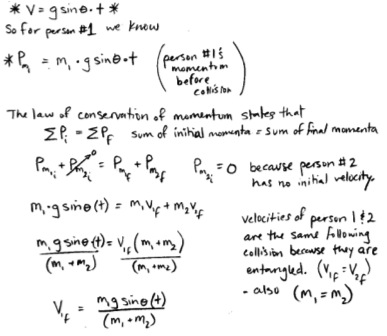 * V = g sinθ · t *
So for person #1 we know
* Pm₁ = m₁ · g sinθ · t (person #1's momentum before collision)
The law of conservation of momentum states that
ΣPi = ΣPf sum of initial momenta = sum of final momenta
Pm₁i + Pm₂i⁰ = Pm₁f + Pm₂f Pm₂i = 0 because person #2
has no initial velocity.
m₁ · g sinθ (t) = m₁V₁f + m₂V₂f
m₁ g sinθ (t) / (m₁ + m₂) = V₁f (m₁ + m₂) / (m₁ + m₂)
V₁f = m₁ g sinθ (t) / (m₁ + m₂)
velocities of person 1 & 2
are the same following
collision because they are
entangled. (V₁f = V₂f)
- also (m₁ = m₂)